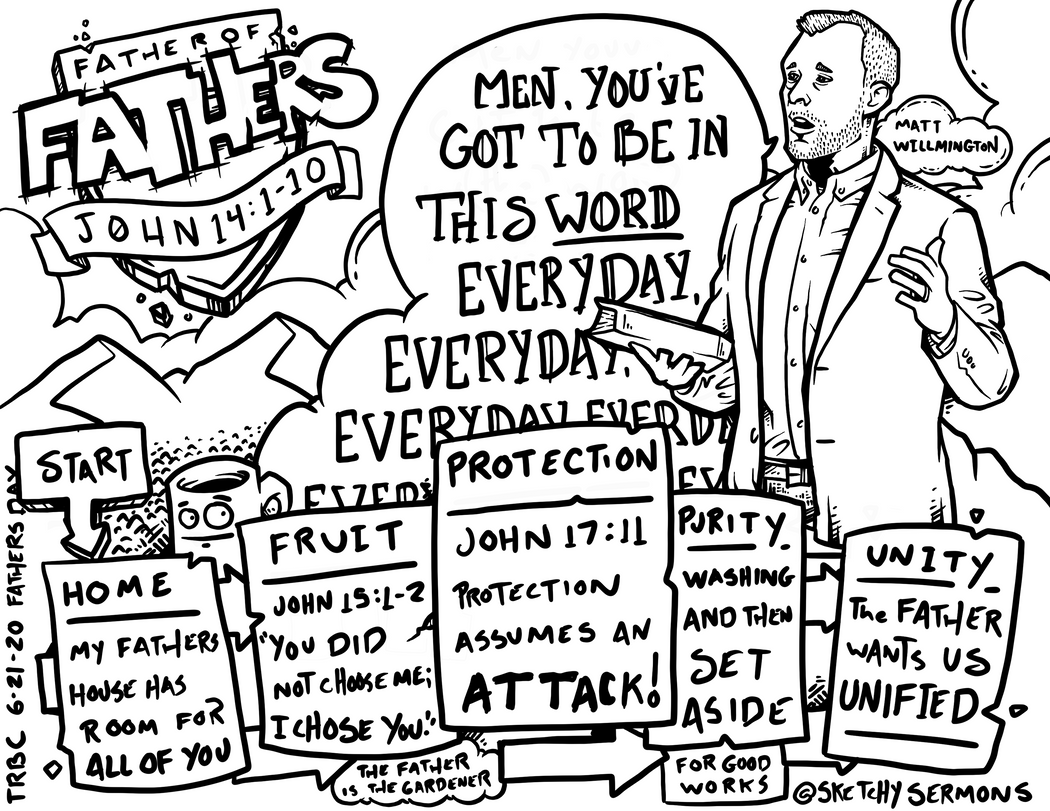 FATHER OF
FATHERS
JOHN 14:1-10
MEN, YOU'VE
GOT TO BE IN
THIS WORD
EVERYDAY,
EVERYDAY,
EVERYDAY
MATT
WILLMINGTON
START
HOME
MY FATHERS
HOUSE HAS
ROOM FOR
ALL OF YOU
FRUIT
JOHN 15:1-2
"YOU DID
NOT CHOOSE ME;
I CHOSE YOU."
THE FATHER
IS THE GARDENER
PROTECTION
JOHN 17:11
PROTECTION
ASSUMES AN
ATTACK!
PURITY
WASHING
AND THEN
SET
ASIDE
FOR GOOD
WORKS
UNITY
The FATHER
WANTS US
UNIFIED
TRBC 6-21-20 FATHERS DAY
@SKETCHYSERMONS